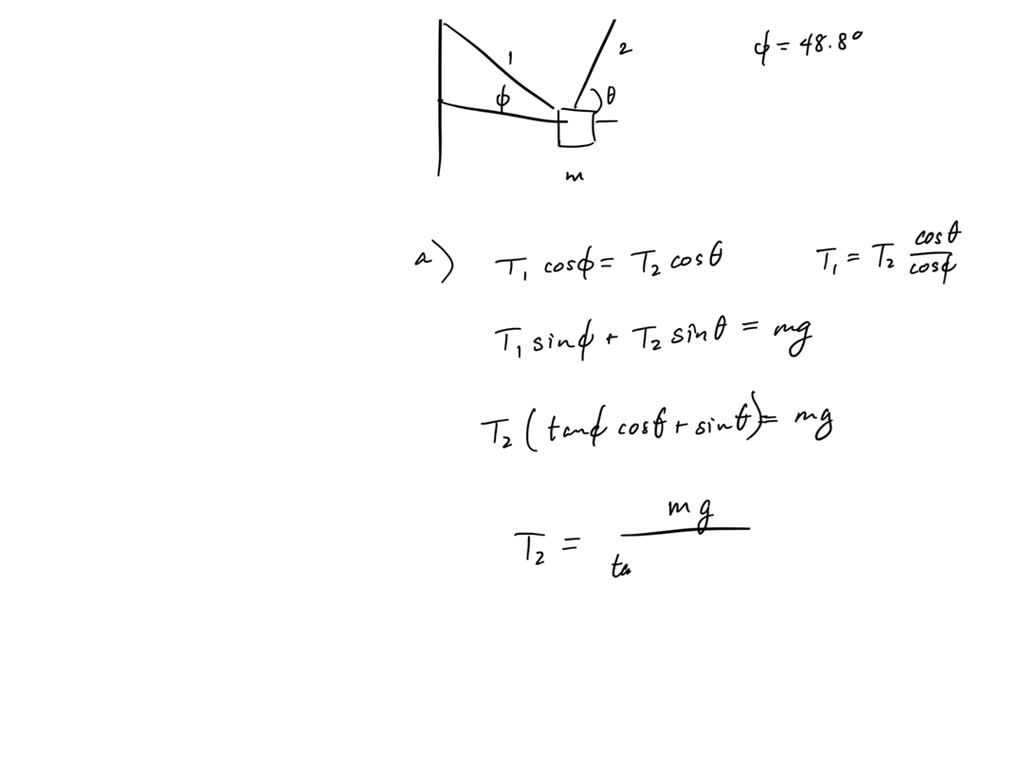 1
2
ϕ = 48.8°
ϕ
θ
m
a) T₁ cosϕ = T₂ cosθ T₁ = T₂ cosθ/cosϕ
T₁ sinϕ + T₂ sinθ = mg
T₂ (tanϕ cosθ + sinθ) = mg
T₂ = mg/ta